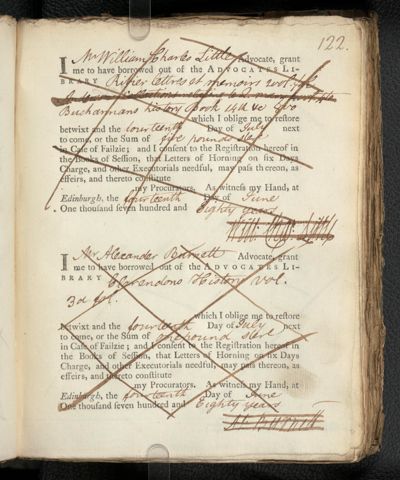 122.
I Mr William Charles Little Advocate, grant
me to have borrowed out of the ADVOCATES LI-
BRARY Richer Lettres et memoirs vol.
Buchannans history Book 14th &c 8vo
which I oblige me to restore
betwixt and the fourteenth Day of July next
to come, or the Sum of five pound sterl
in Case of Failzie; and I consent to the Registration hereof in
the Books of Session, that Letters of Horning on six Days
Charge, and other Executorials needful, may pass thereon, as
effeirs, and thereto constitute
my Procurators. As witness my Hand, at
Edinburgh, the fourteenth Day of June
One thousand seven hundred and Eighty years
Will: Chas: Little
I Mr Alexander Burnett Advocate, grant
me to have borrowed out of the ADVOCATES LI-
BRARY Clarendons History vol.
3d fol.
which I oblige me to restore
betwixt and the fourteenth Day of July next
to come, or the Sum of one pound sterl
in Case of Failzie; and I consent to the Registration hereof in
the Books of Session, that Letters of Horning on six Days
Charge, and other Executorials needful, may pass thereon, as
effeirs, and thereto constitute
my Procurators. As witness my Hand, at
Edinburgh, the fourteenth Day of June
One thousand seven hundred and Eighty years
Al: Burnett